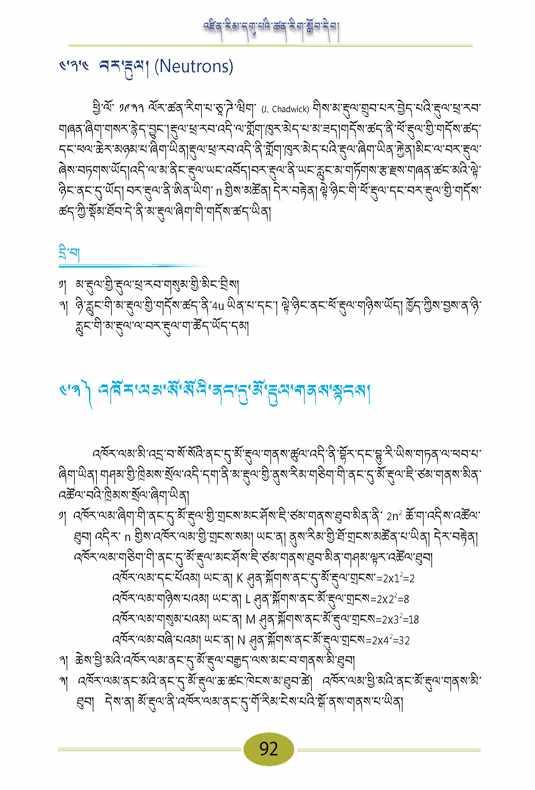 འཛིན་རིམ་དགུ་པའི་ཚན་རིག་སློབ་དེབ།
༤་༢་༤ བར་རྡུལ། (Neutrons)
ཕྱི་ལོ་ ༡༩༣༢ ལོར་ཚན་རིག་པ་ཅཱ་ཌེ་ཝིག་ (J. Chadwick) གིས་མ་རྡུལ་གྲུབ་པར་བྱེད་པའི་རྡུལ་ཕྲ་རབ་
གཞན་ཞིག་གསར་རྙེད་བྱུང་།རྡུལ་ཕྲ་རབ་འདི་ལ་གློག་ཁུར་མེད་པ་མ་ཟད།གདོས་ཚད་ནི་ཕོ་རྡུལ་གྱི་གདོས་ཚད་
དང་ཕལ་ཆེར་མཉམ་པ་ཞིག་ཡིན།རྡུལ་ཕྲ་རབ་འདི་ནི་གློག་ཁུར་མེད་པའི་རྡུལ་ཞིག་ཡིན་རྐྱེན།མིང་ལ་བར་རྡུལ་
ཞེས་བཏགས་ཡོད།འདི་ལ་མ་ནིང་རྡུལ་ཡང་འབོད།བར་རྡུལ་ནི་ཡང་རླུང་མ་གཏོགས་རྩ་རྫས་གཞན་ཚང་མའི་ལྟེ་
ཉིང་ནང་དུ་ཡོད། བར་རྡུལ་ནི་ཨིན་ཡིག་ n གྱིས་མཚོན། དེར་བརྟེན། ལྟེ་ཉིང་གི་ཕོ་རྡུལ་དང་བར་རྡུལ་གྱི་གདོས་
ཚད་ཀྱི་སྡོམ་ཐོབ་དེ་ནི་མ་རྡུལ་ཞིག་གི་གདོས་ཚད་ཡིན།
དྲི་བ།
༡། མ་རྡུལ་གྱི་རྡུལ་ཕྲ་རབ་གསུམ་གྱི་མིང་བྲིས།
༢། ཉི་རླུང་གི་མ་རྡུལ་གྱི་གདོས་ཚད་ནི་4u ཡིན་པ་དང་། ལྟེ་ཉིང་ནང་ཕོ་རྡུལ་གཉིས་ཡོད། ཁྱོད་ཀྱིས་བྱས་ན་ཉི་
རླུང་གི་མ་རྡུལ་ལ་བར་རྡུལ་ག་ཚོད་ཡོད་དམ།
༤་༣) འཁོར་ལམ་སོ་སོའི་ནང་དུ་མོ་རྡུལ་གནས་སྟངས།
འཁོར་ལམ་མི་འདྲ་བ་སོ་སོའི་ནང་དུ་མོ་རྡུལ་གནས་ཚུལ་འདི་ནི་བྷོར་དང་བྷུ་རི་ཡིས་གཏན་ལ་ཕབ་པ་
ཞིག་ཡིན། གཤམ་གྱི་ཁྲིམས་སྲོལ་འདི་དག་ནི་མ་རྡུལ་གྱི་ནུས་རིམ་གཅིག་གི་ནང་དུ་མོ་རྡུལ་ཇི་ཙམ་གནས་མིན་
འཚོལ་བའི་ཁྲིམས་སྲོལ་ཞིག་ཡིན།
༡། འཁོར་ལམ་ཞིག་གི་ནང་དུ་མོ་རྡུལ་གྱི་གྲངས་མང་ཤོས་ཇི་ཙམ་གནས་ཐུབ་མིན་ནི་ 2n² ཚོ་ག་འདིས་འཚོལ་
ཐུབ། འདིར་ n གྱིས་འཁོར་ལམ་གྱི་གྲངས་སམ། ཡང་ན། ནུས་རིམ་གྱི་ཐོ་གྲངས་མཚོན་པ་ཡིན། དེར་བརྟེན།
འཁོར་ལམ་གཅིག་གི་ནང་དུ་མོ་རྡུལ་མང་ཤོས་ཇི་ཙམ་གནས་ཐུབ་མིན་གཤམ་ལྟར་འཚོལ་ཐུབ།
འཁོར་ལམ་དང་པོའམ། ཡང་ན། K ཤུན་སྐོགས་ནང་དུ་མོ་རྡུལ་གྲངས་=2x1²=2
འཁོར་ལམ་གཉིས་པའམ། ཡང་ན། L ཤུན་སྐོགས་ནང་མོ་རྡུལ་གྲངས=2x2²=8
འཁོར་ལམ་གསུམ་པའམ། ཡང་ན། M ཤུན་སྐོགས་ནང་མོ་རྡུལ་གྲངས=2x3²=18
འཁོར་ལམ་བཞི་པའམ། ཡང་ན། N ཤུན་སྐོགས་ནང་མོ་རྡུལ་གྲངས=2x4²=32
༢། ཆེས་ཕྱི་མའི་འཁོར་ལམ་ནང་དུ་མོ་རྡུལ་བརྒྱད་ལས་མང་བ་གནས་མི་ཐུབ།
༣། འཁོར་ལམ་ནང་མའི་ནང་དུ་མོ་རྡུལ་ཆ་ཚང་ཁེངས་མ་ཐུབ་ཚེ། འཁོར་ལམ་ཕྱི་མའི་ནང་མོ་རྡུལ་གནས་མི་
ཐུབ། དེས་ན། མོ་རྡུལ་ནི་འཁོར་ལམ་ནང་དུ་གོ་རིམ་ངེས་པའི་སྒོ་ནས་གནས་པ་ཡིན།
92